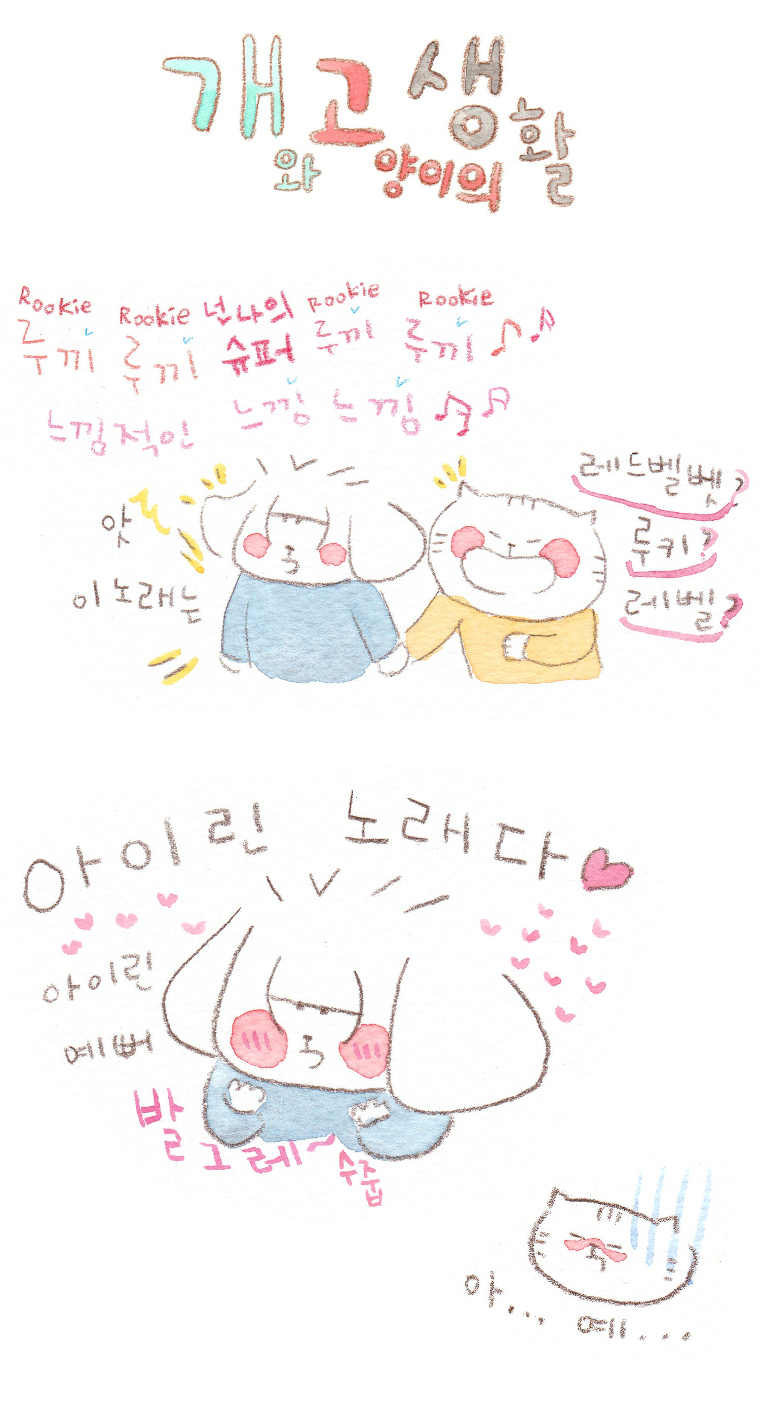 개와 고양이의 생활
Rookie Rookie 넌 나의 Rookie Rookie
루끼 루끼 슈퍼 루끼 루끼
느낌적인 느낌 느낌
앗
이 노래는
레드벨벳?
루키?
레벨?
아이린 노래다
아이린
예뻐
발그레~
수줍
아... 예...